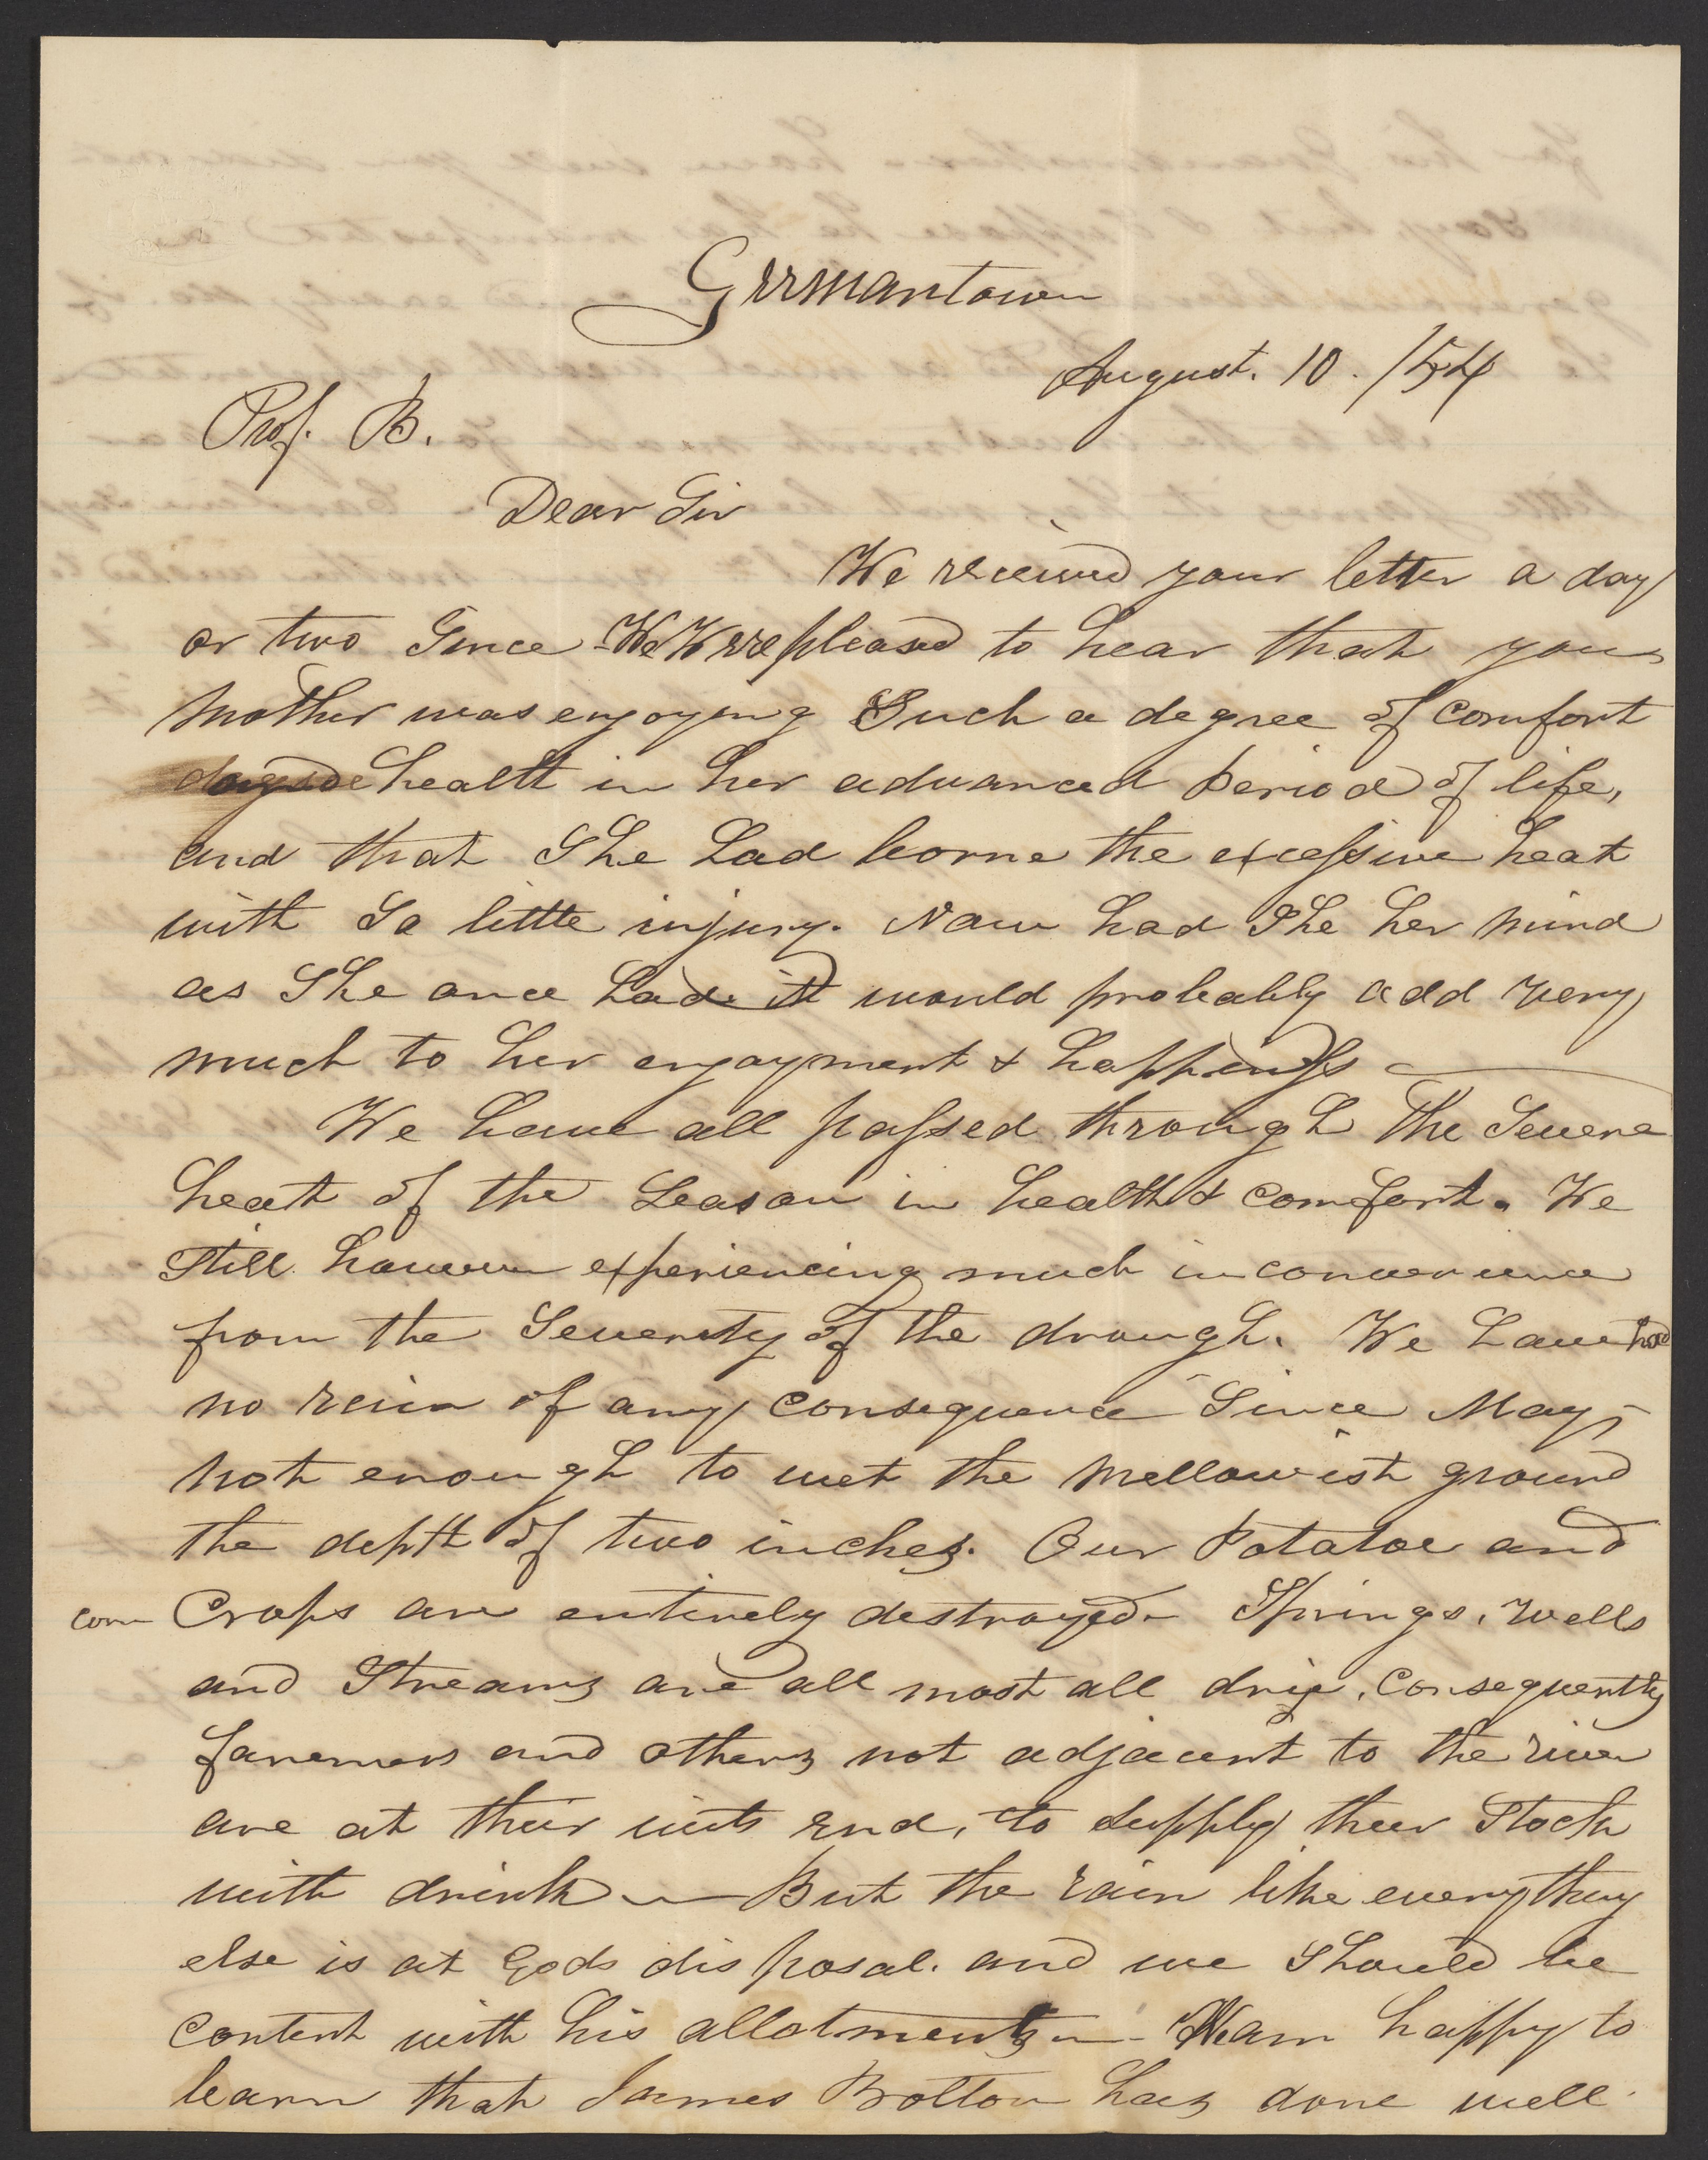 Germantown
August. 10. /54
Prof. B.
Dear Sir
We received your letter a day
or two Since We Were pleased to hear that your
Mother was enjoying Such a degree of comfort
health in her advanced period of life,
and that She had borne the excessive heat
with So little injury. Now had She her mind
as She once had. it would probably add very
much to her enjoyment & happiness
We have all passed through the Severe
heat of the Season in health & comfort. We
Still however experiencing much inconvenience
from the Severity of the drough. We have had
no rain of any consequence Since May,
not enough to wet the mellowist ground
the depth of two inches. Our Potatoe and
corn Crops are entirely destroyed. Springs, wells
and Streams are all most all dry, Consequently
farmers and others not adjacent to the river
are at their wits end, to Supply their Stock
with drink - But the rain like everything
else is at Gods disposal. and we Should be
content with his allotments - am happy to
learn that James Bolton has done well